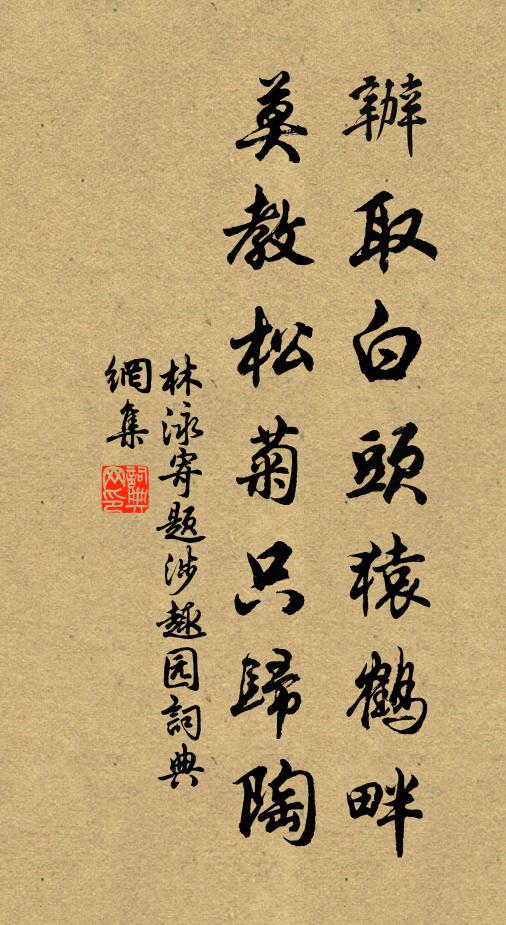 辦取白頭猿鶴畔
莫教松菊只歸陶
林泳寄題涉趣园詞典
網集
詞典網印